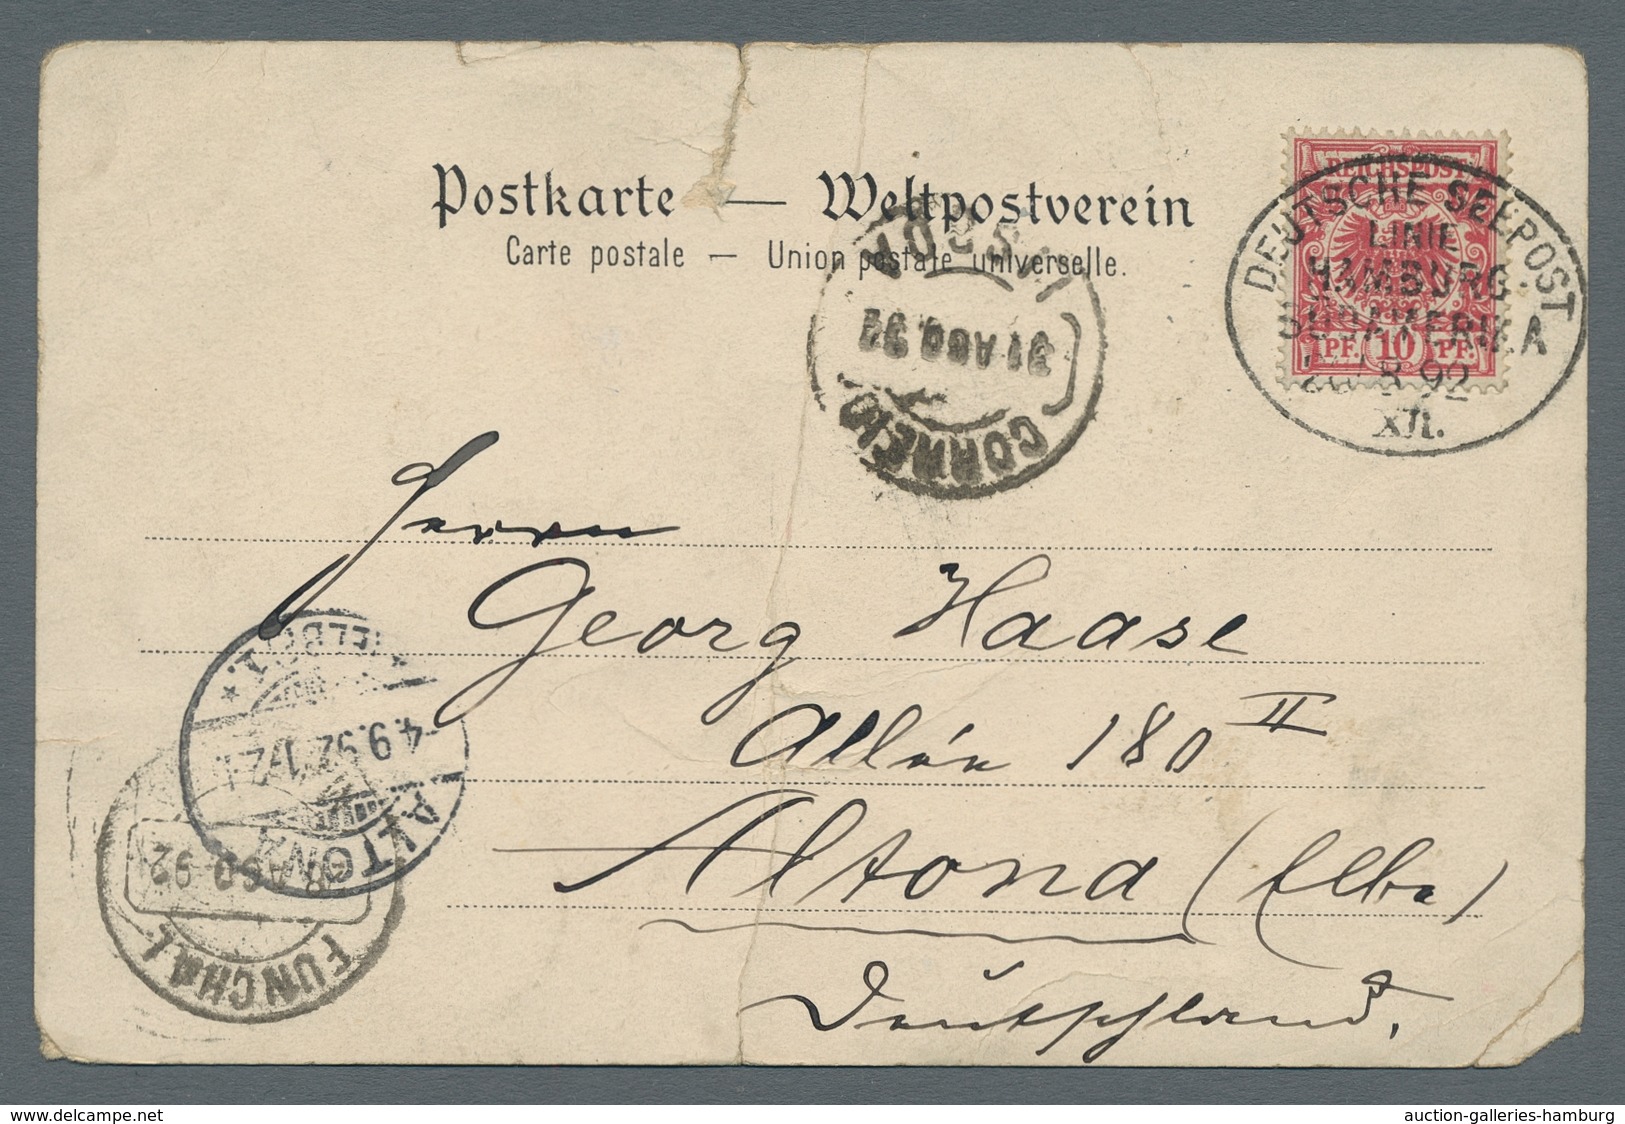 Postkarte — Weltpostverein
Carte postale — Union postale universelle.
REICHSPOST
PF. 10 PF.
DEUTSCHE SEEPOST
LINIE
HAMBURG
SÜDAMERIKA
8 92
XII.
31 AGO. 92
CORREIO
Herrn
Georg Haase
Allée 180 II
Altona (Elbe)
Deutschland.
ALTONA
4.9.92.
AGO 92
FUNCHAL
www.delcampe.net
auction-galleries-hamburg